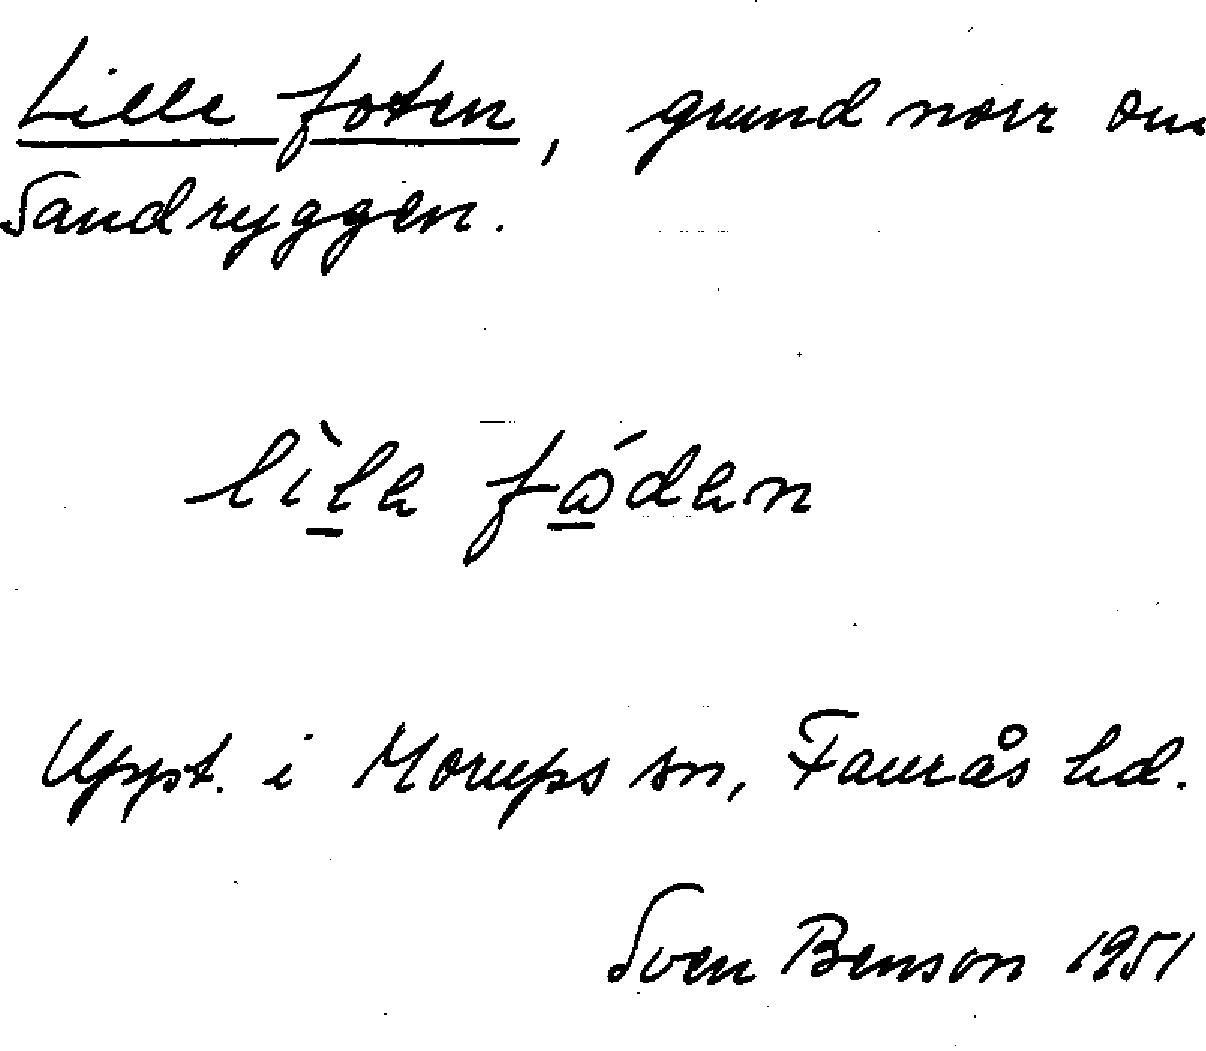 Lille foten, grund norr om
Sandryggen.
lìla fó̲dan
Uppt. i Morups sn, Faurås hd.
Sven Benson 1951